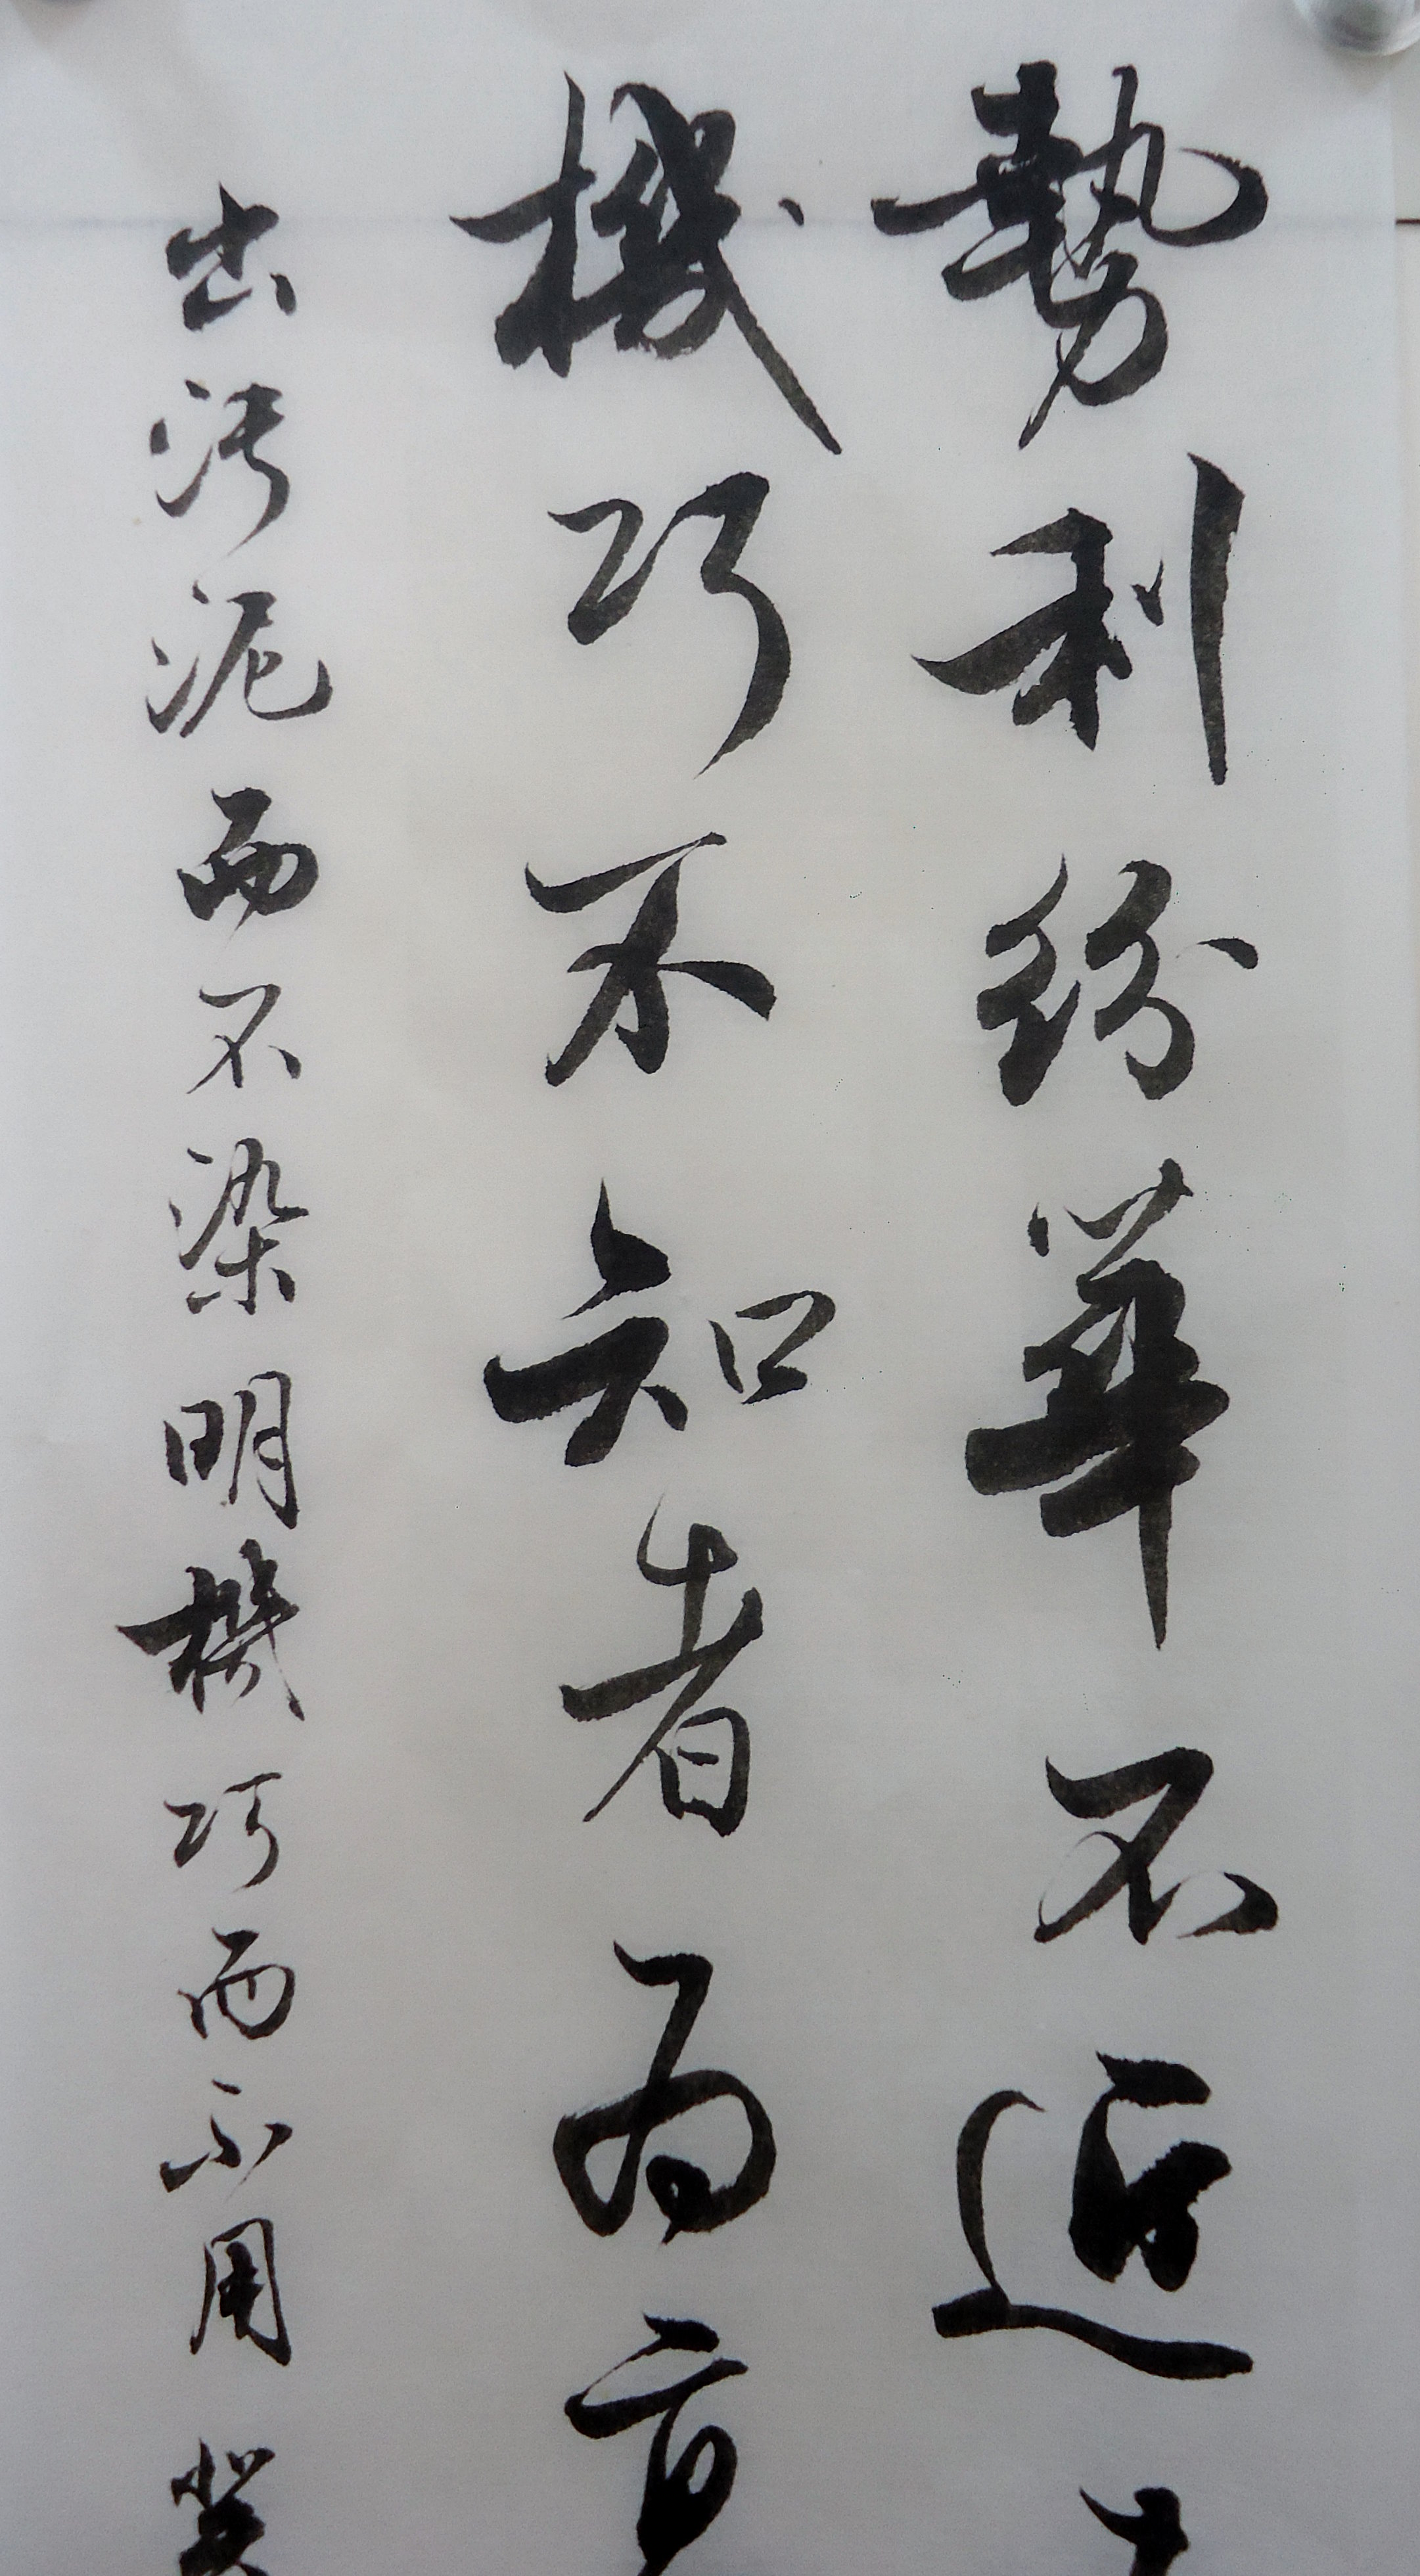 勢利紛華不近
機巧不知者為高
出污泥而不染明機巧而不用癸